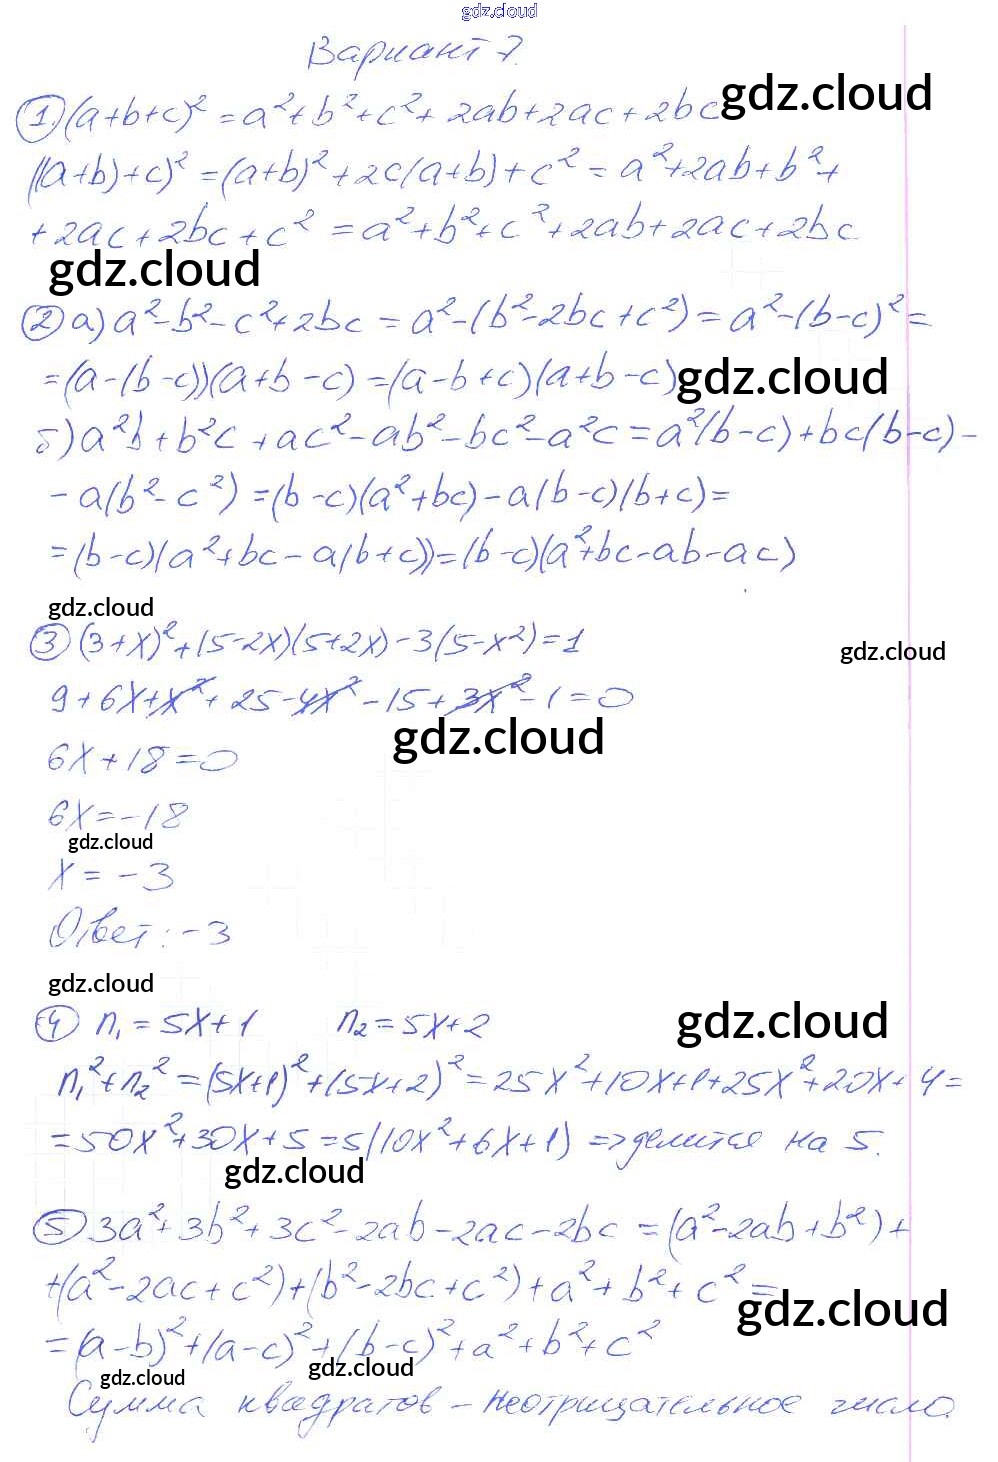 gdz.cloud
Вариант 7.
① (a+b+c)² = a²+b²+c²+2ab+2ac+2bc gdz.cloud
((a+b)+c)² = (a+b)²+2c(a+b)+c² = a²+2ab+b²+
+2ac+2bc+c² = a²+b²+c²+2ab+2ac+2bc.
gdz.cloud
② а) a²-b²-c²+2bc = a²-(b²-2bc+c²) = a²-(b-c)² =
= (a-(b-c))(a+b-c) = (a-b+c)(a+b-c) gdz.cloud
б) a²b+b²c+ac²-ab²-bc²-a²c = a²(b-c)+bc(b-c)-
-a(b²-c²) = (b-c)(a²+bc)-a(b-c)(b+c) =
= (b-c)(a²+bc-a(b+c)) = (b-c)(a²+bc-ab-ac)
gdz.cloud
③ (3+x)²+(5-2x)(5+2x)-3(5-x²)=1
gdz.cloud
9+6x+x²+25-4x²-15+3x²-1=0
gdz.cloud
6x+18=0
6x=-18
gdz.cloud
x=-3
Ответ: -3
gdz.cloud
④ n₁=5x+1 n₂=5x+2 gdz.cloud
n₁²+n₂² = (5x+1)²+(5x+2)² = 25x²+10x+1+25x²+20x+4 =
= 50x²+30x+5 = 5(10x²+6x+1) => делится на 5.
gdz.cloud
⑤ 3a²+3b²+3c²-2ab-2ac-2bc = (a²-2ab+b²)+
+(a²-2ac+c²)+(b²-2bc+c²)+a²+b²+c² =
gdz.cloud
= (a-b)²+(a-c)²+(b-c)²+a²+b²+c²
gdz.cloud gdz.cloud
Сумма квадратов – неотрицательное число.